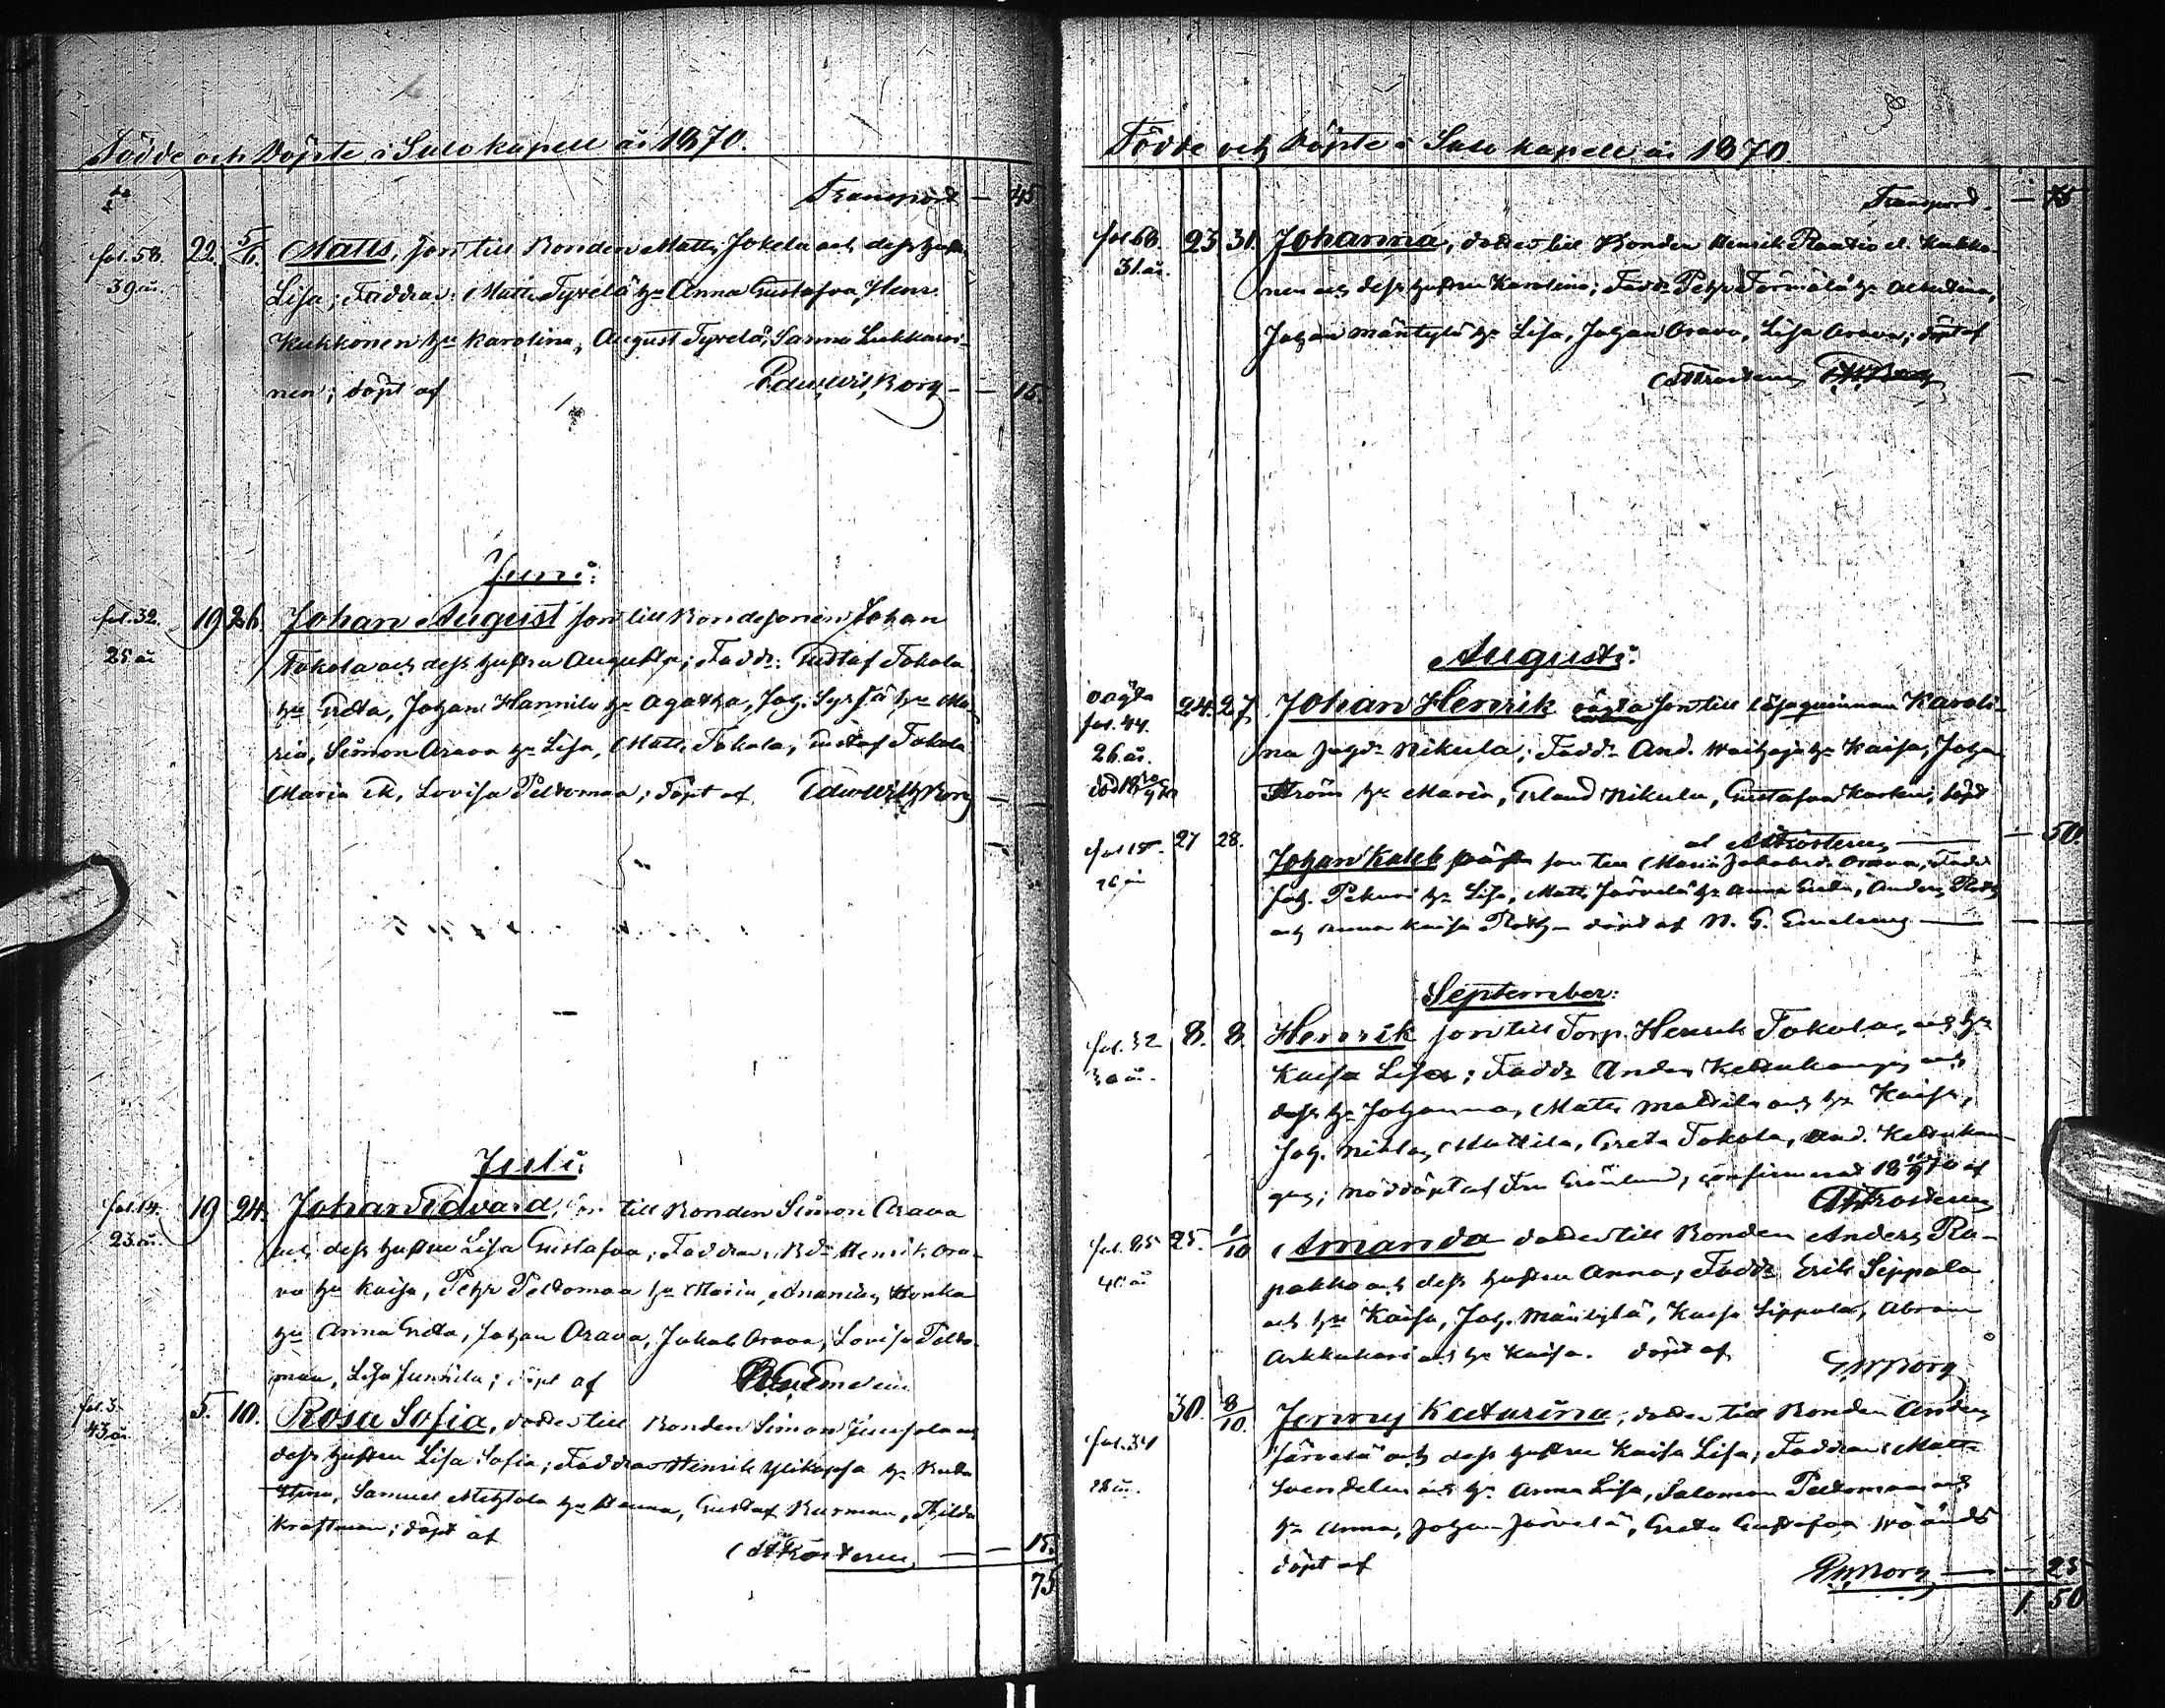 Födde och Döpte i Sulo kapell år 1870.
Transport — 45
fol. 58. 22. 5/6. Matts, son till Bonden Matts Jokela och dess hustru
39 år. Lisa; Faddrar: Matts Tyrelä hu Anna Gustafsa, Henr.
Kukkonen hu Karolina, August Tyrelä, Sanna Lukkaroi-
nen; döpt af Edw. Wilh. Borg — — 15.
Juni:
fol. 32. 19 26. Johan August son till Bondesonen Johan
25 år Tokola och dess hustru Augusta; Faddr: Gustaf Tokola
hu Greta, Johan Hannila hu Agatha, Joh. Syrjä hu Ma-
ria, Simon Orava hu Lisa, Matts Tokola, Gustaf Tokola
Maria, Lovisa Peltomaa; döpt af Edw. Wilh. Borg — —
Juli:
fol. 14. 19 24. Johan Edvard, son till Bonden Simon Orava
23 år. och dess hustru Lisa Gustafsa; Faddrar: Bd. Henrik Ora-
va hu Kaisa, Petr Peltomaa hu Maria, Ananias Honka
hu Anna Greta, Johan Orava, Jakob Orava, Lovisa Pelto-
maa, Lisa Junnila; döpt af
fol. 3. 5. 10. Rosa Sofia, dotter till Bonden Simon Junsola och
43 år. dess hustru Lisa Sofia; Faddrar Henrik Ylikojola hu
Stina, Samuel Mehtola hu Hanna, Gustaf Burman, Hilda
Kraftman; döpt af — — 15.
75
Födde och Döpte i Sulo kapell år 1870.
Transport. — 75
fol. 68. 23 31. Johanna, dotter till Bonden Henrik Rautio el. Kukko-
31 år. nen och dess hustru Karolina; Faddr Petr Törmälä hu Albertina,
Johan Mäntylä hu Lisa, Johan Orava, Lisa Orava; döpt af
— —
Augusti:
oägta fol. 44. 24. 27. Johan Henrik oägta son till lösqvinnan Karoli-
26 år. na Nikula; Faddr And. hu Kaisa, Johan
Ström hu Maria, Erland Nikula, Gustafsa; döpt
af — 50.
fol 15. 27 28. Johan Kaleb son till Maria Jakobsd. Orava; Faddr
26 år Joh. Pekuri hu Lisa, Matts Järvelä hu Anna Greta, Anders
och Anna Kaisa döpt af N. G. — —
September:
fol. 32 8. 8. Henrik son till Torp. Henrik Tokola, och hu
30 år. Kaisa Lisa; Faddr Anders Keltukangas och
dess hu Johanna, Matts Mattila och hu Kaisa,
Joh. Niklas Mattila, Greta Tokola, And. Keltukan-
gas; nöddöpt af Fru Grönlund, confirmerad 18 11/9 70 af
fol. 85 25. 1/10 Amanda dotter till Bonden Anders Ra-
40 år pakko och dess hustru Anna; Faddr Erik Sippola
och hu Kaisa, Joh. Mäntylä, Kaisa Sippola, Abram
och hu Kaisa. döpt af E W Borg
fol. 34 30. 8/10. Jenny Katarina; dotter till Bonden Anders
28 år. Järvelä och dess hustru Kaisa Lisa; Faddrar Matts
Svendelin och hu Anna Lisa, Salomon Peltomaa och
hu Anna, Johan Järvelä, Greta Gustafsa
döpt af E W Borg — — 25
1. 50